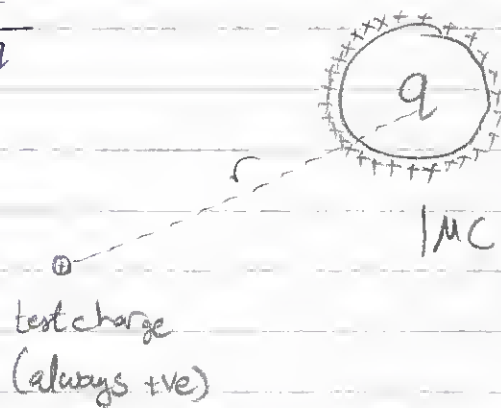 q
q
r
1μC
⊕
test charge
(always +ve)